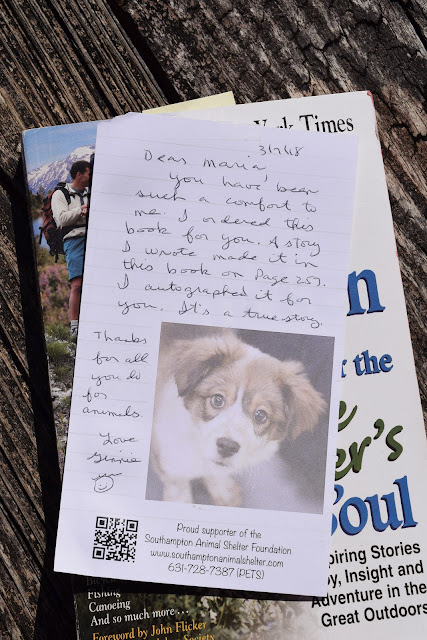 York Times
3/7/18
Dear Maria,
You have been
such a comfort to
me. I ordered this
book for you. A story
I wrote made it in
this book on Page 257.
I autographed it for
you. It's a true story.
Thanks
for all
you do
for
animals.
Love
Ginnie
Proud supporter of the
Southampton Animal Shelter Foundation
www.southamptonanimalshelter.com
631-728-7387 (PETS)
the
Soul
Stories
Joy, Insight and
Adventure in the
Great Outdoors
Fishing
Canoeing
And so much more . . .
Foreword by John Flicker
Society